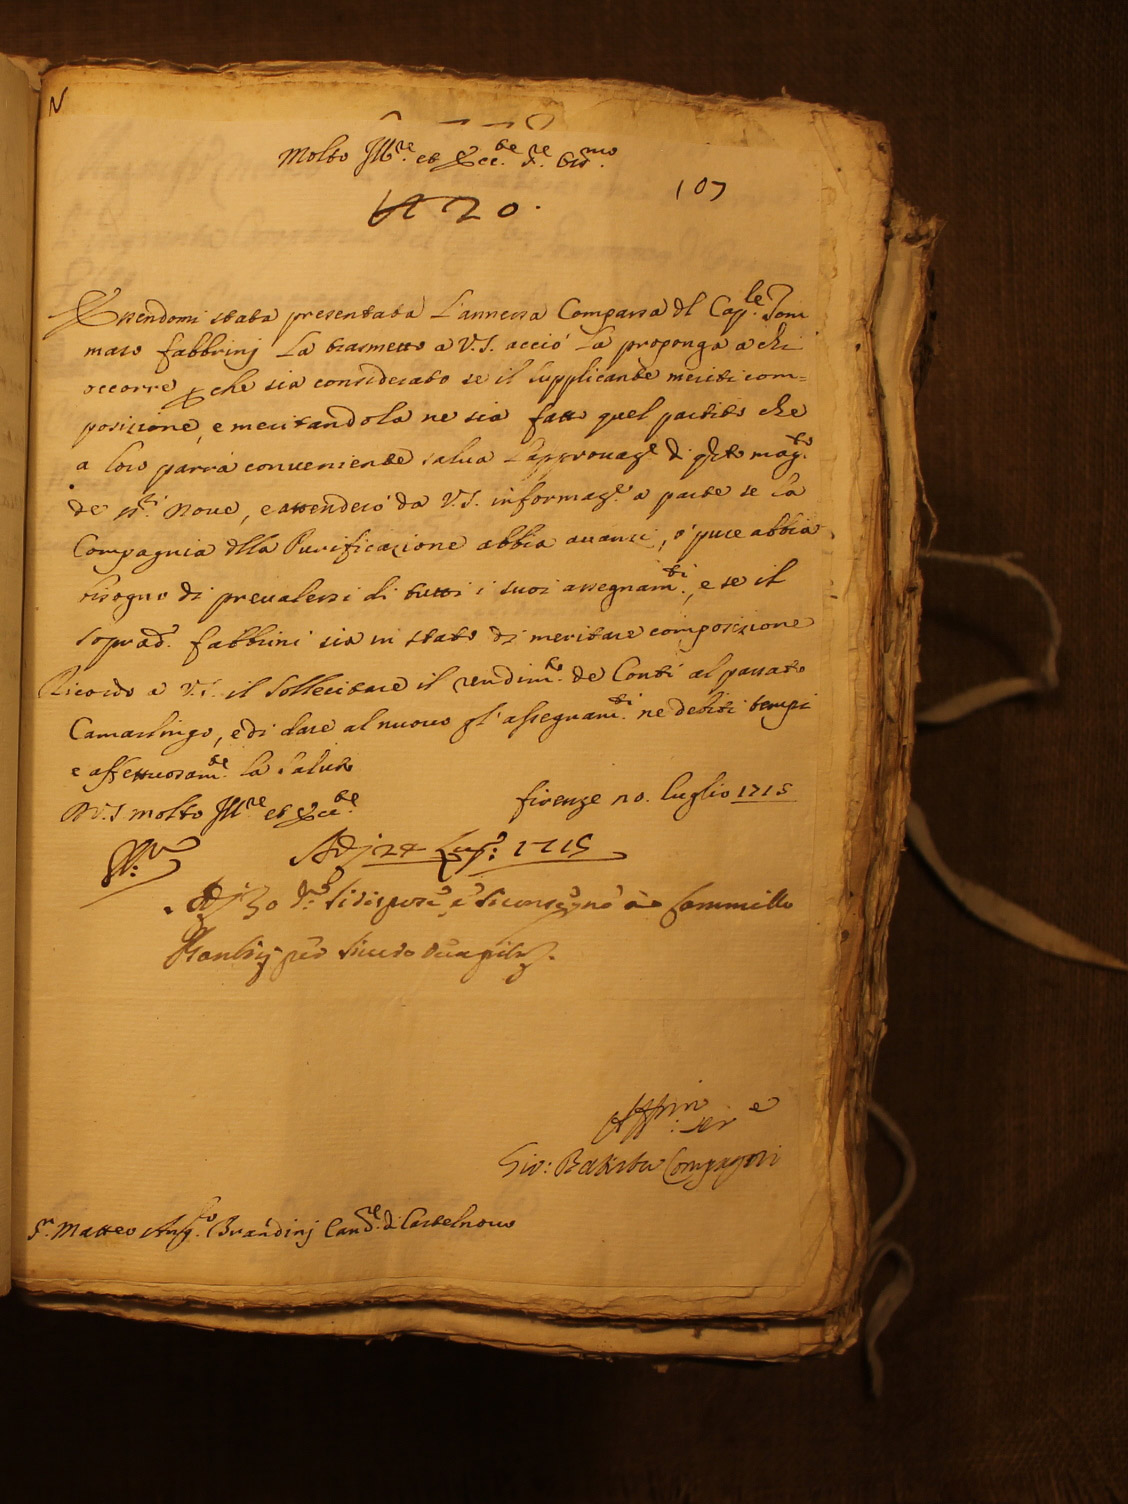 N
Molto Ill.re et Ecc.te S.re Oss.mo
107
N 20.
Essendomi stata presentata L'annessa Comparsa dl Cap.le Tom
maso fabbrinj La trasmetto a V.S. acciò La proponga a chi
occorre p che sia considerato se il supplicante meriti com=
posizione, e meritandola ne sia fatto quel partito che
a loro parrà conveniente salva L'approvaz.e di q.sto mag.to
de ss.ri Nove, e attenderò da V.S. informaz.e a parte se La
Compagnia dlla Purificazione abbia avanzi, ò pure abbia
bisogno di prevalersi di tutti i suoi assegnam.ti, e se il
soprad.o fabbrini sia in stato di meritare composizione
Ricordo a V.S. il sollecitare il rendim.to de Conti al passato
Camarlingo, e di dare al nuovo gl'assegnam.ti ne debiti tempi
e affettuosam.te la saluto
D V.S molto Ill.re et Ecc.te
firenze 20. luglio 1715
Adj 24 Lug.o 1715
Adj 30 d.o si rispose e si consegnò à Cammillo
per
Aff.mo ser.e
Gio: Batista Compagni
S.r Matteo Ang.lo Brandinj Canc.re di Castelnuovo